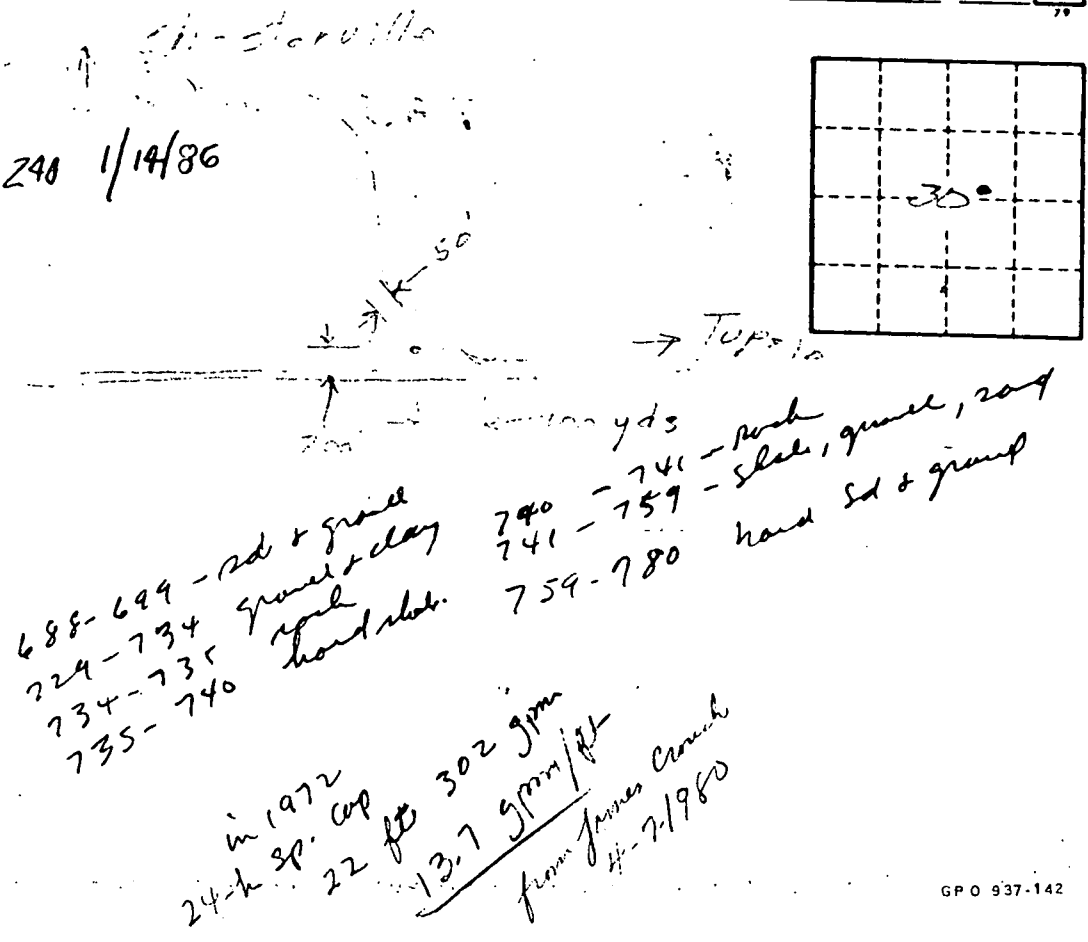 79
1/14/86
30
50'
→ Tupelo
yds
688-699 - sd & gravel
729-734 gravel & clay
734-735 rock
735-740 hard shale.
740 - 741 - rock
741 - 759 - shale, gravel, sand
759-780 hard sd & gravel
in 1972
24-h sp. cap
22 ft 302 gpm
13.7 gpm/ft
from James Crouch
4-7-1980
GPO 937-142